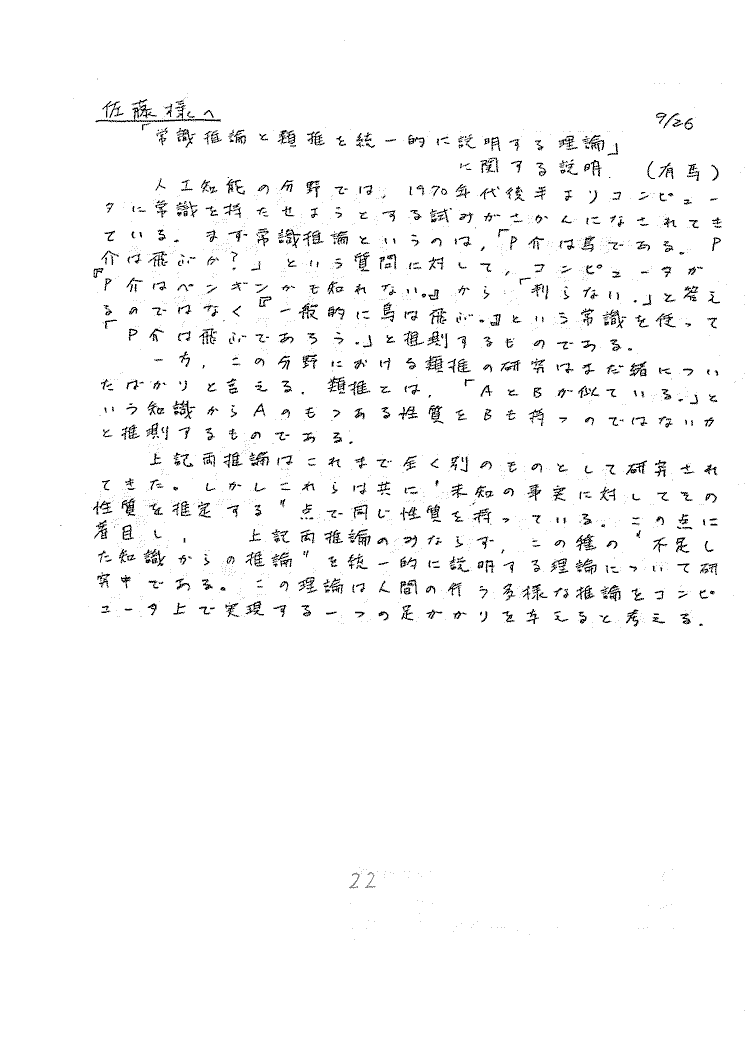 佐藤様へ
9/26
「常識推論と類推を統一的に説明する理論」
に関する説明. (有馬)
人工知能の分野では, 1970年代後半よりコンピュー
タに常識を持たせようとする試みがさかんになされてき
ている. まず常識推論というのは,「P介は鳥である. P
介は飛ぶか?」という質問に対して, コンピュータが
『P介はペンギンかも知れない。』から 「判らない.」と答え
るのではなく『一般的に鳥は飛ぶ.』という常識を使って
「P介は飛ぶであろう.」と推測するものである.
一方, この分野における類推の研究はまだ緒につい
たばかりと言える. 類推とは, 「AとBが似ている.」と
いう知識からAのもつある性質をBも持つのではないか
と推測するものである.
上記両推論はこれまで全く別のものとして研究され
てきた。しかしこれらは共に “未知の事実に対してその
性質を推定する” 点で同じ性質を持っている. この点に
着目し, 上記両推論のみならず, この種の “不足し
た知識からの推論” を統一的に説明する理論について研
究中である。この理論は人間の行う多様な推論をコンピ
ュータ上で実現する一つの足がかりを与えると考える.
22